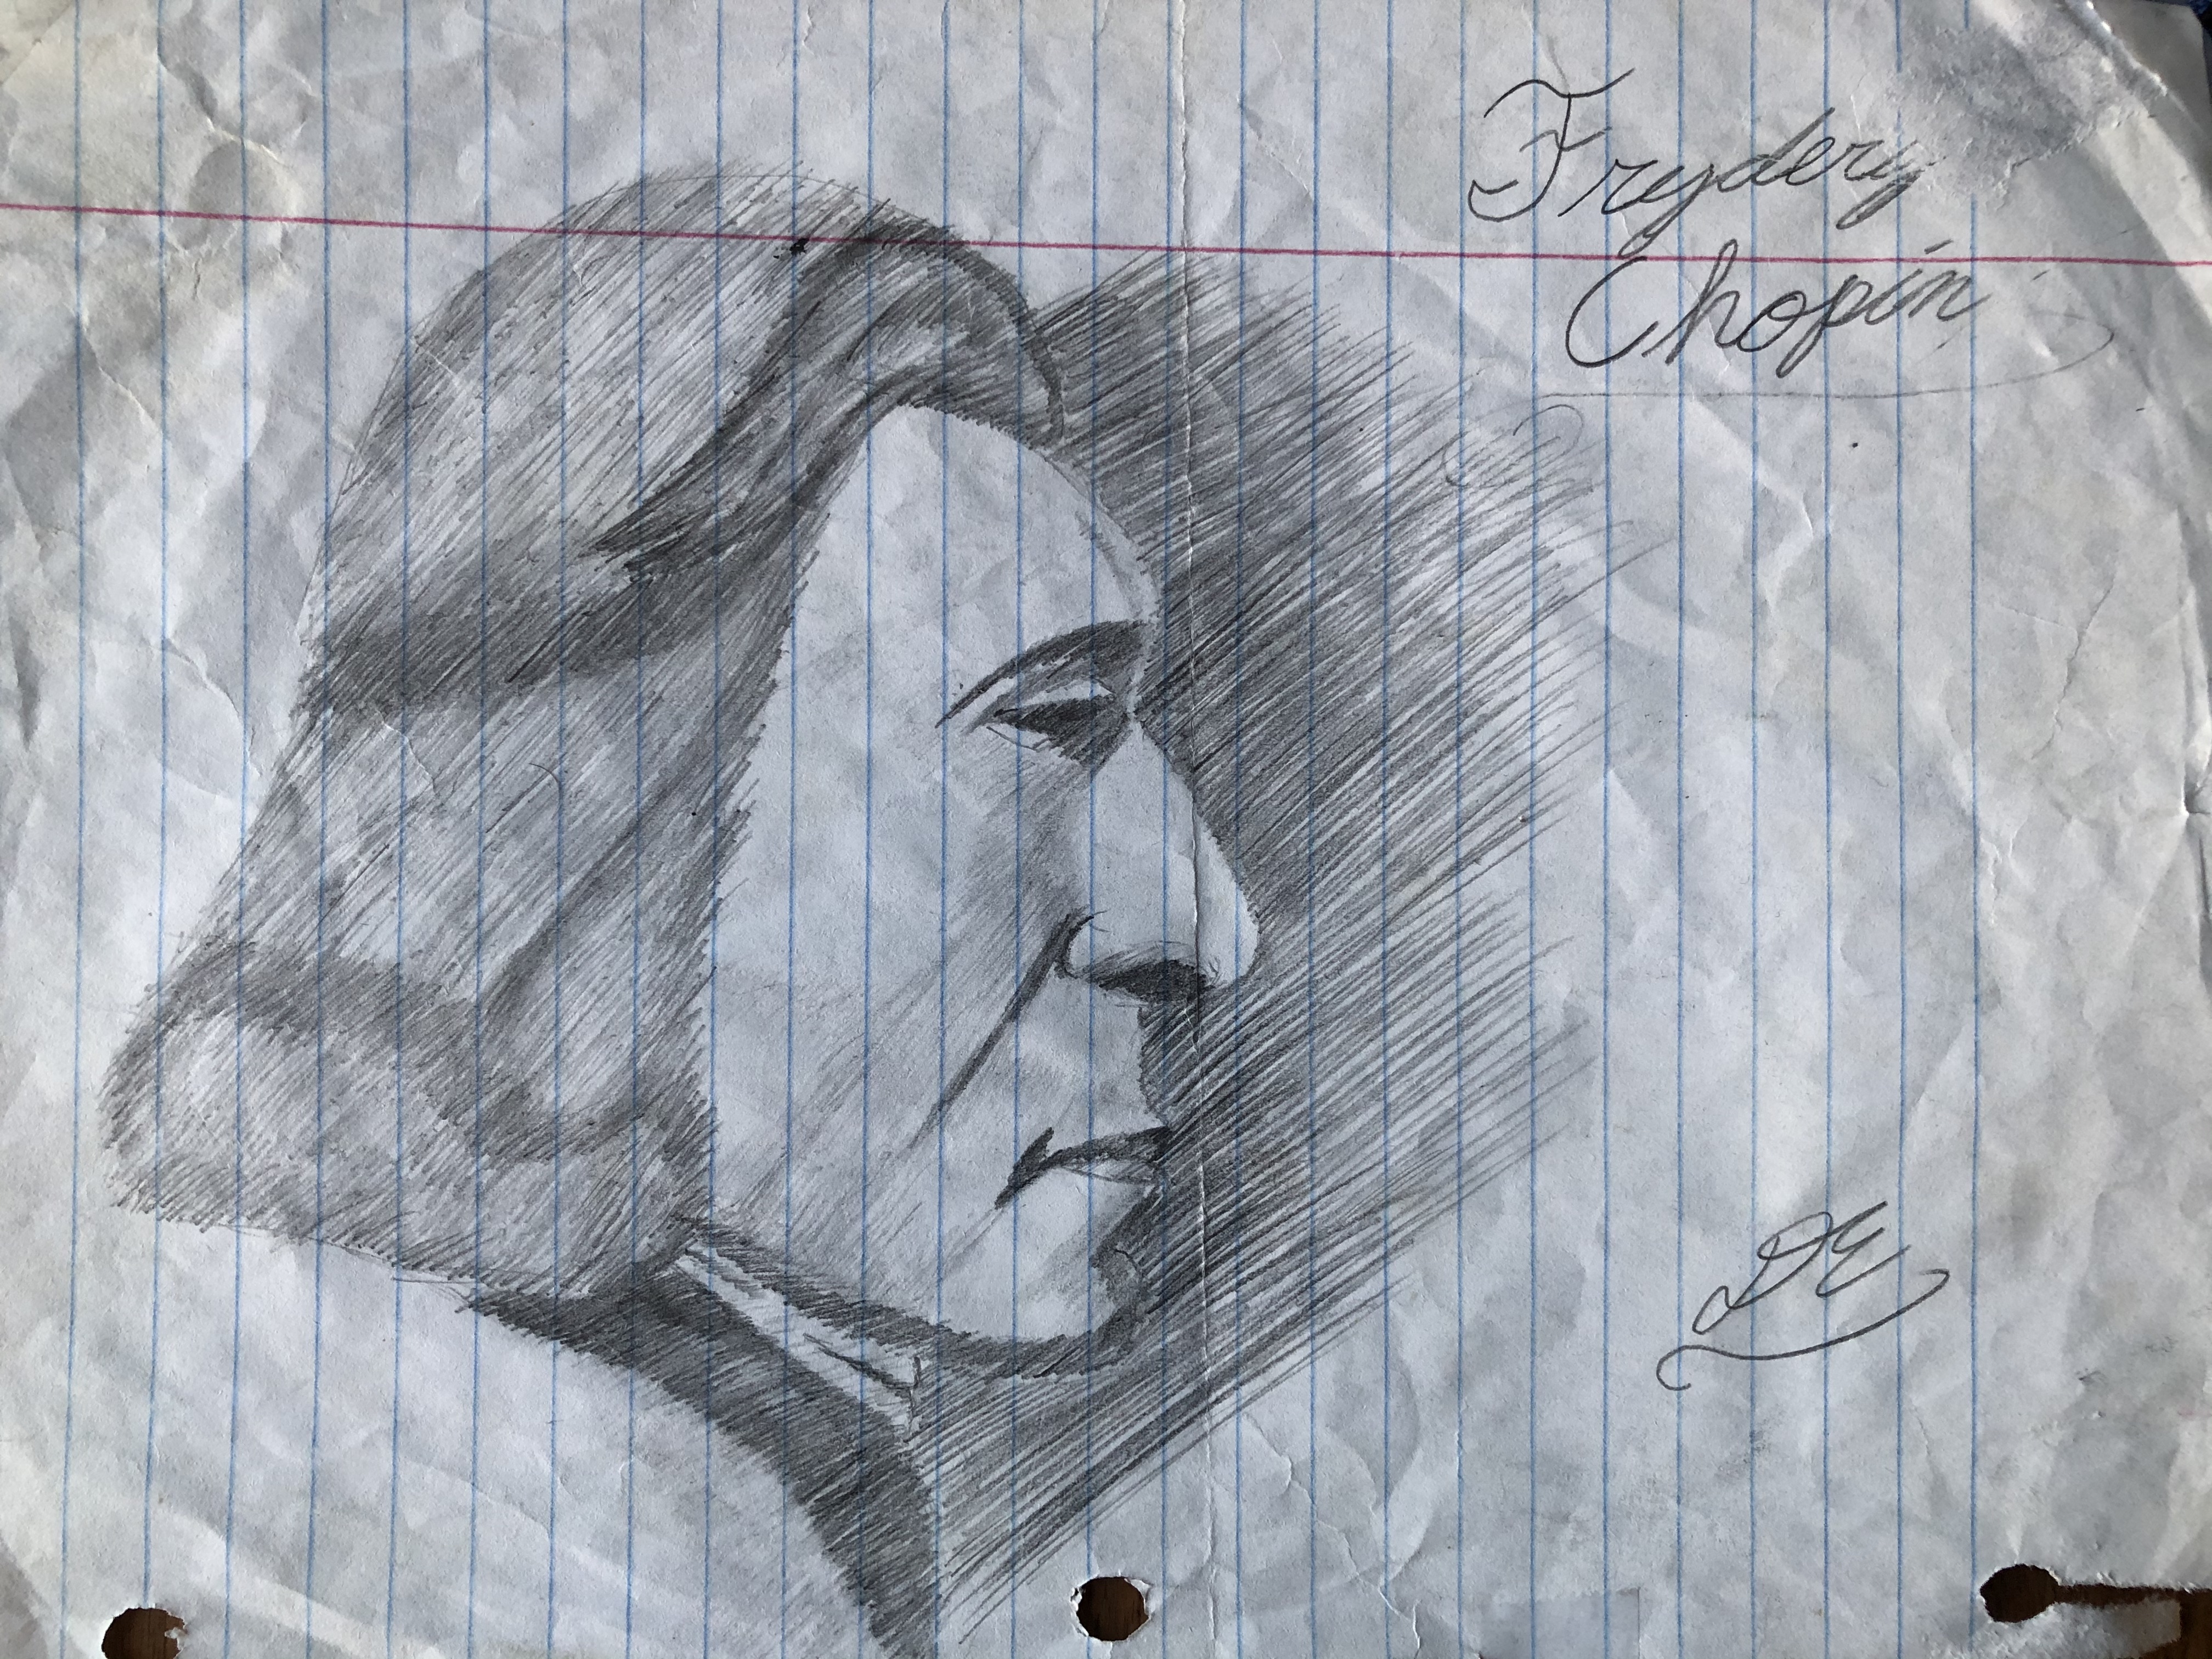 Frydery
Chopin
DE